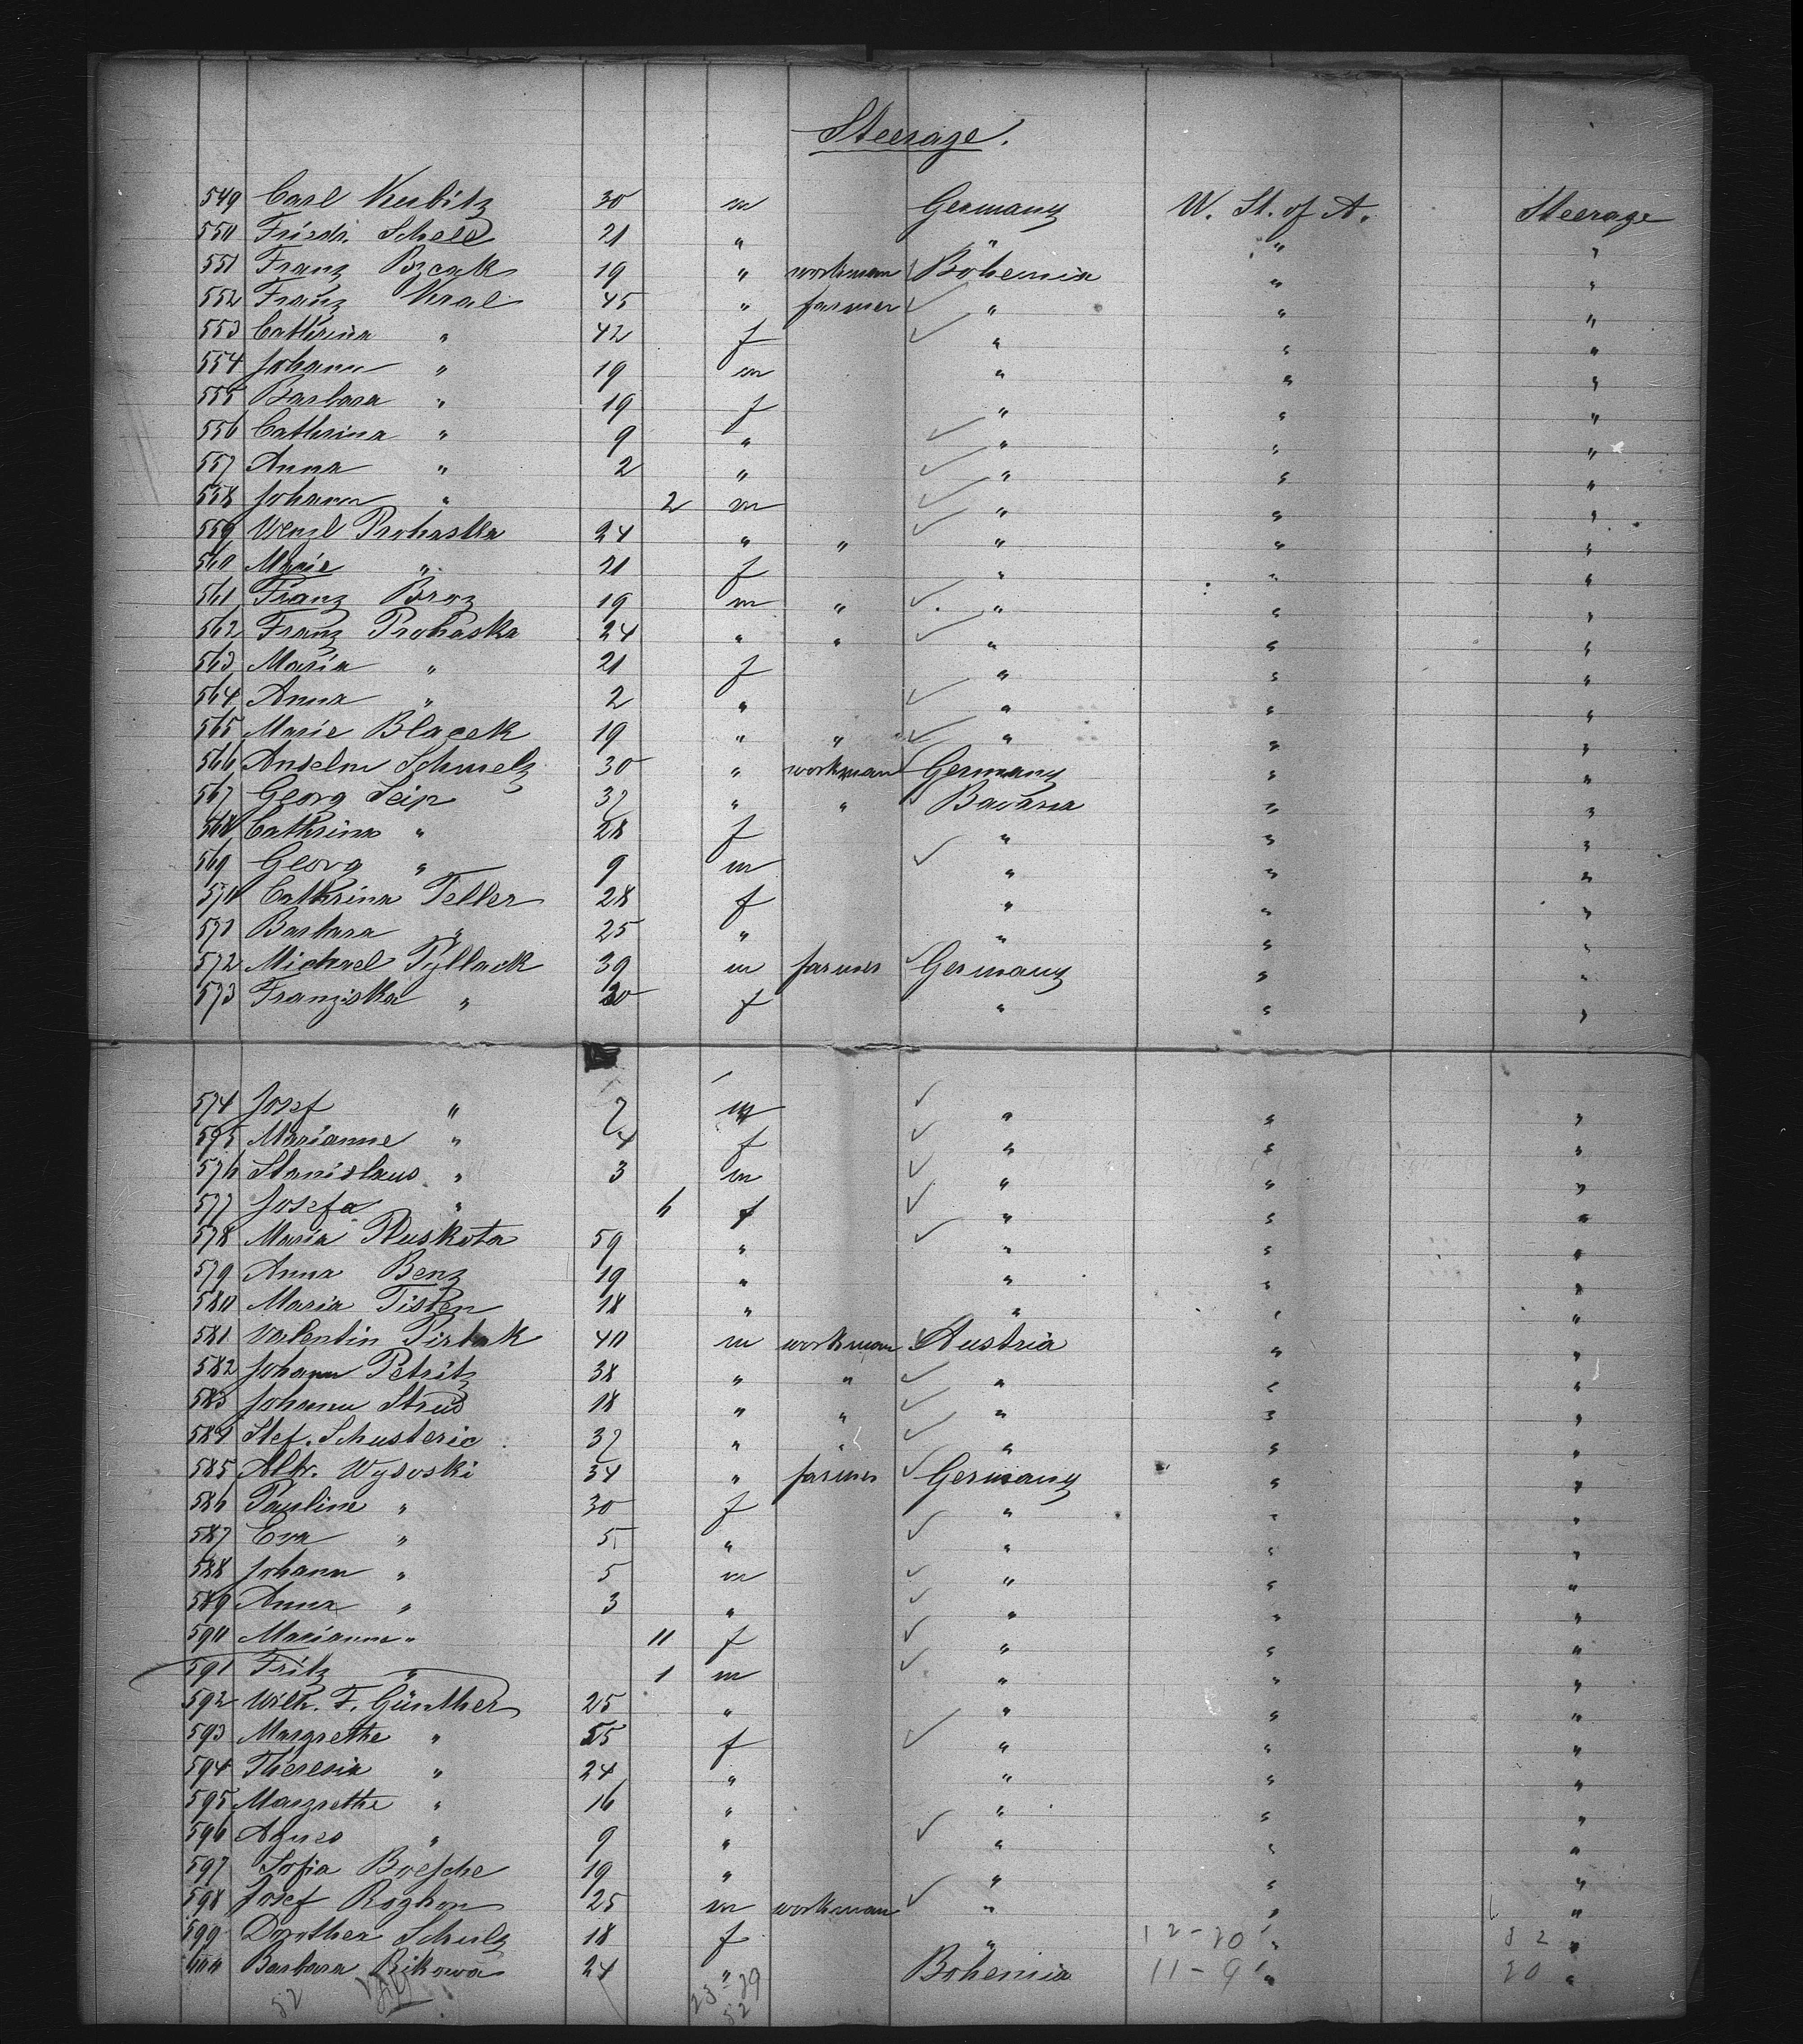 Steerage.
549 Carl Kurbitz 30 m Germany W. St. of A. Steerage
550 Friedr. Schell 21 " " " "
551 Franz 19 " workman Bohemia " "
552 Franz Kral 45 " farmer " " "
553 Cathrina " 42 f " " "
554 Johann " 19 m " " "
555 Barbara " 19 f " " "
556 Cathrina " 9 " " " "
557 Anna " 2 " " " "
558 Johann " 2 m " " "
559 Wenzl Prohaska 24 " " " " "
560 Marie " 21 f " " "
561 Franz Broz 19 m " " " "
562 Franz Prohaska 24 " " " " "
563 Maria " 21 f " " "
564 Anna " 2 " " " "
565 Marie Blacek 19 " " " " "
566 Anselm Schmelz 30 " workman Germany " "
567 Georg Seip 37 " " Bavaria " "
568 Cathrina " 28 f " " "
569 Georg " 9 m " " "
570 Cathrina Teller 28 f " " "
571 Barbara " 25 " " " "
572 Michael Pyllack 39 m farmer Germany " "
573 Franziska " 30 f " " "
574 Josef " 7 m " " "
575 Marianne " 4 f " " "
576 Stanislaus " 3 m " " "
577 Josefa " 6 f " " "
578 Maria Pluskota 59 " " " "
579 Anna Benz 19 " " " "
580 Maria Tisten 18 " " " "
581 Valentin 40 m workman Austria " "
582 Johann Petritz 38 " " " " "
583 Johann Strus 18 " " " " "
584 Stef. Schusteric 37 " " " " "
585 Albr. Wysoski 34 " farmer Germany " "
586 Pauline " 30 f " " "
587 Eva " 5 " " " "
588 Johann " 5 m " " "
589 Anna " 3 " " " "
590 Marianne " 11 f " " "
591 Fritz " 1 m " " "
592 Wilh. F. Günther 25 " " " "
593 Margrethe " 55 f " " "
594 Theresia " 24 " " " "
595 Margrethe " 16 " " " "
596 Agnes " 9 " " " "
597 Sofia Boesche 19 " " " "
598 Josef Roghon 25 m workman " " "
599 Dorothea Schulz 18 f " 12-20 " 32 "
600 Barbara Rikowa 24 " Bohemia 11-9 " 20 "
52 23-29
52